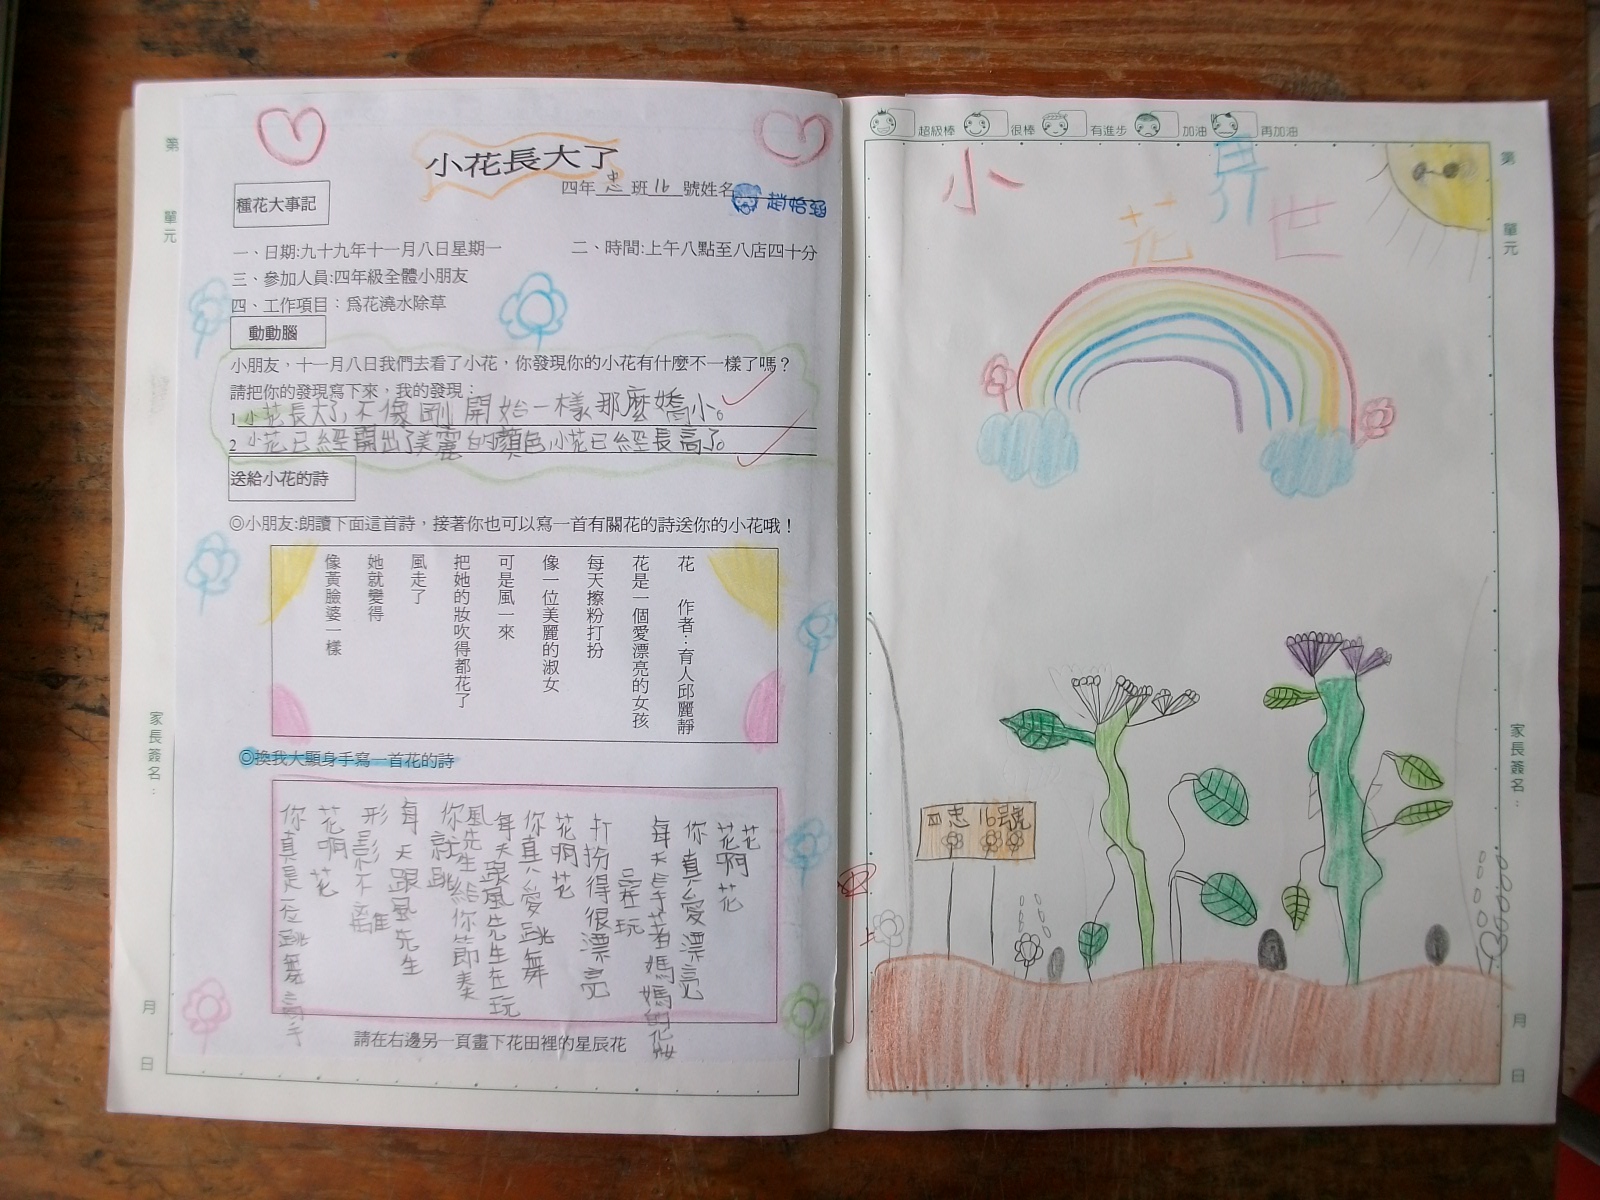 小花長大了
四年忠班16號姓名
種花大事記
一、日期:九十九年十一月八日星期一
二、時間:上午八點至八店四十分
三、參加人員:四年級全體小朋友
四、工作項目：為花澆水除草
動動腦
小朋友，十一月八日我們去看了小花，你發現你的小花有什麼不一樣了嗎？
請把你的發現寫下來，我的發現：
1 小花長大了,不像剛開始一樣那麼嬌小。
2 小花已經開出了美麗的顏色小花已經長高了。
送給小花的詩
◎小朋友:朗讀下面這首詩，接著你也可以寫一首有關花的詩送你的小花哦！
花 作者：育人邱麗靜
花是一個愛漂亮的女孩
每天擦粉打扮
像一位美麗的淑女
可是風一來
把她的妝吹得都花了
風走了
她就變得
像黃臉婆一樣
◎換我大顯身手寫一首花的詩
花
花啊花
你真愛漂亮
每天拿著媽媽的化妝
在玩
打扮得很漂亮
花啊花
你真愛跳舞
每天跟風先生在玩
風先生給你節奏
你就跳
每天跟風先生
形影不離
花啊花
你真是一位跳舞高手
請在右邊另一頁畫下花田裡的星辰花
第
單元
家長簽名：
月
日
超級棒
很棒
有進步
加油
再加油
小花界世
四忠16號
第
單元
家長簽名：
月
日